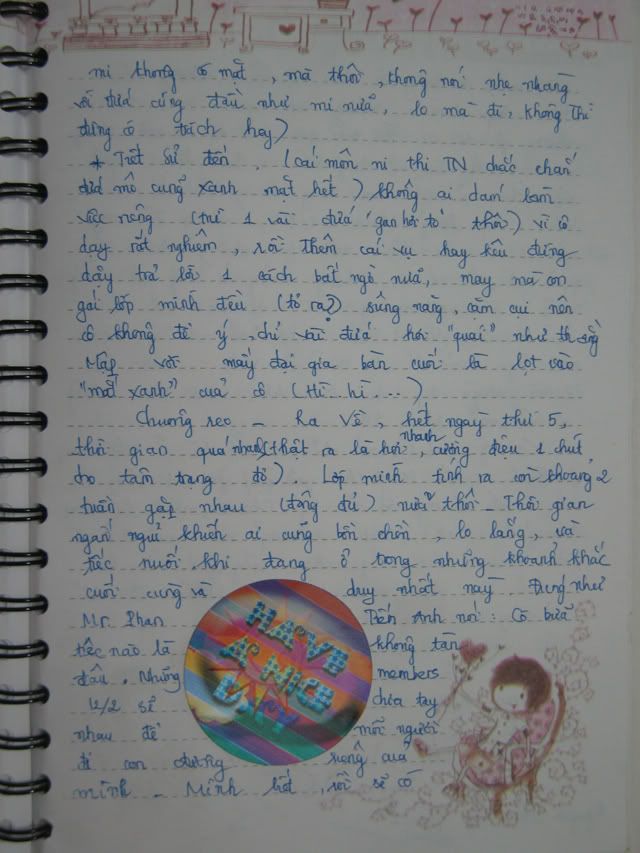 mi không có mặt, mà thôi, không nói nhẹ nhàng
với đứa cứng đầu như mi nữa, lo mà đi, không thì
đừng có trách hay)
* Tiết Sử đến, (cái môn ni thi TN chắc chắn
đứa mô cũng xanh mặt hết) không ai dám làm
việc riêng (trừ 1 vài đứa "gan hơi to" thôi) vì cô
dạy rất nghiêm, rồi thêm cái vụ hay kêu đứng
dậy trả lời 1 cách bất ngờ nữa, may mà con
gái lớp mình đều (tỏ ra?) siêng năng, cằm cụi nên
cô không để ý, chỉ vài đứa hơi "quái" như th
Mập với mấy đại gia bàn cuối là lọt vào
"mắt xanh" của cô (Hì hì...)
Chuông reo - Ra Về, hết ngày thứ 5,
thời gian quá nhanh (thật ra là hơi nhanh, cường điệu 1 chút
cho tâm trạng đó). Lớp mình tính ra còn khoảng 2
tuần gặp nhau (đông đủ) nữa thôi - Thời gian
ngắn ngủi khiến ai cũng bồn chồn, lo lắng, và
tiếc nuối khi đang ở trong những khoảnh khắc
cuối cùng và duy nhất này. Đúng như
Mr. Phan Tiến Anh nói: Có bữa
tiệc nào là không tàn
đâu, Những members
12/2 sẽ chia tay
nhau để mỗi người
đi con đường riêng của
mình - Mình biết, rồi sẽ có
HAVING
A NICE
DAY